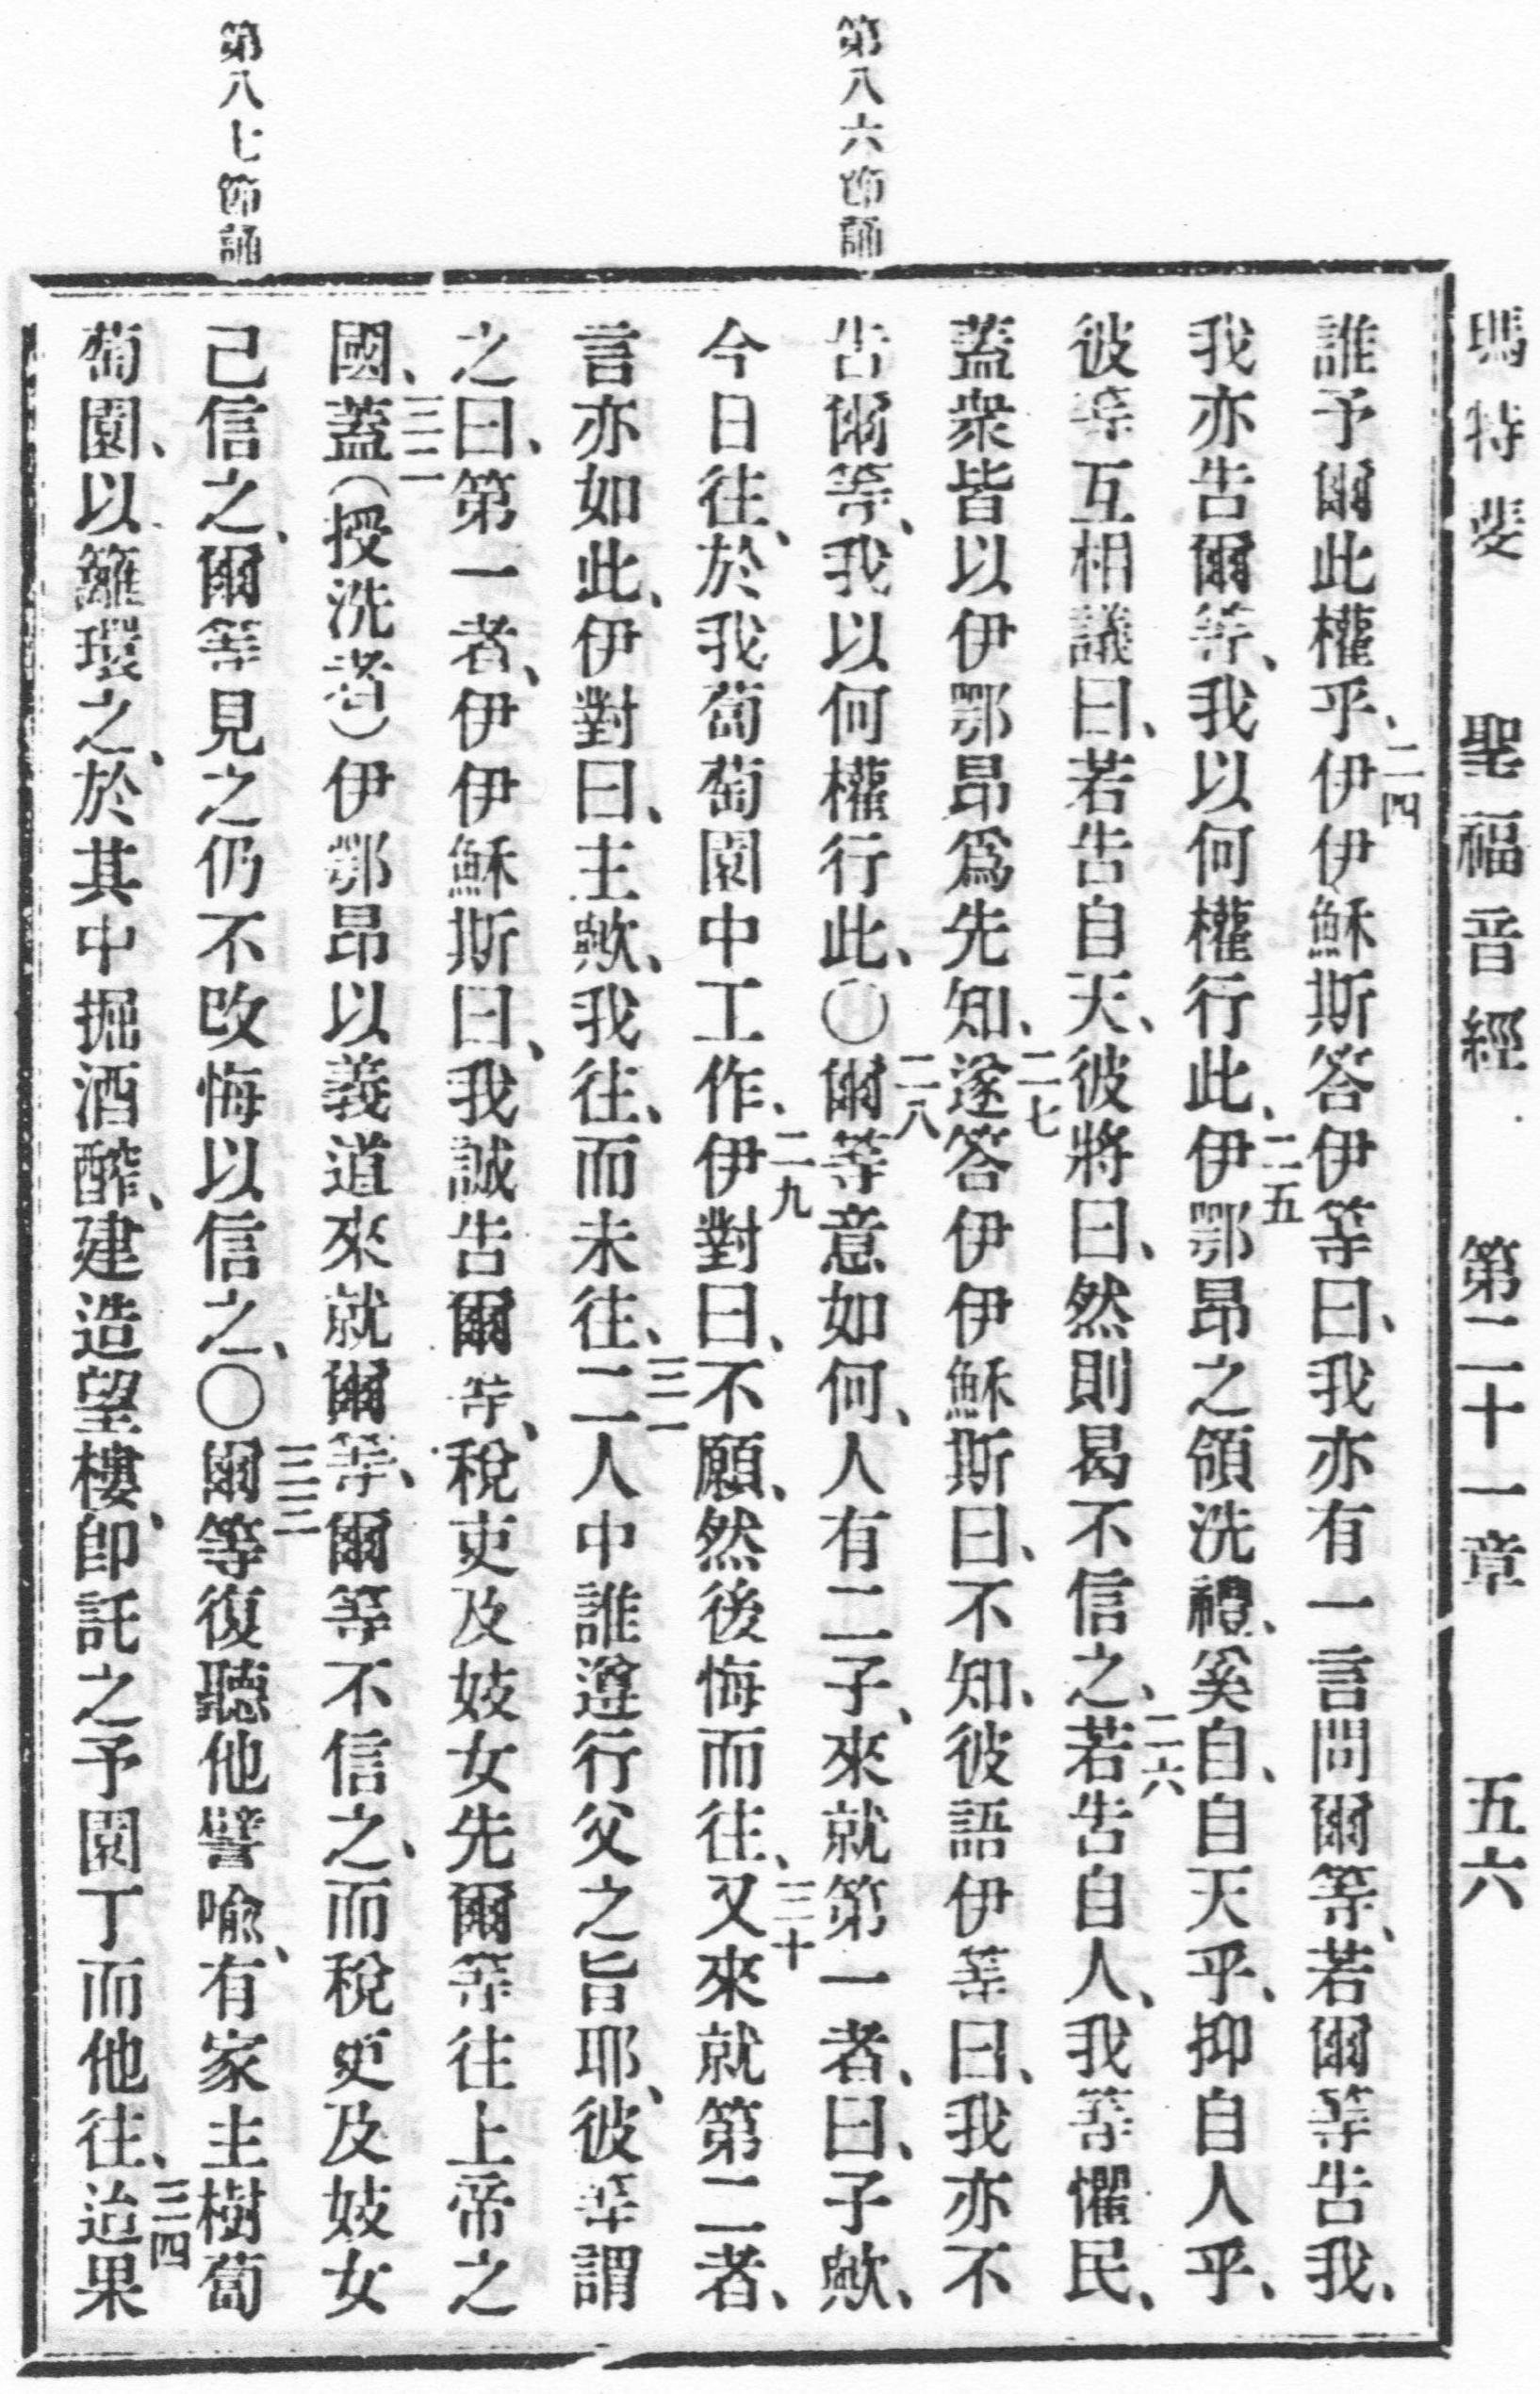 瑪特斐 聖福音經 第二十一章 五六
第八六節誦
第八七節誦
誰予爾此權乎、二四伊伊穌斯答伊等曰、我亦有一言問爾等、若爾等告我、
我亦告爾等、我以何權行此、二五伊鄂昻之領洗禮、奚自、自天乎、抑自人乎、
彼等互相議曰、若告自天、彼將曰、然則曷不信之、二六若告自人、我等懼民、
蓋衆皆以伊鄂昻爲先知、二七遂答伊伊穌斯曰、不知、彼語伊等曰、我亦不
告爾等、我以何權行此、〇二八爾等意如何、人有二子、來就第一者、曰、子歟、
今日往、於我萄萄園中工作、二九伊對曰、不願、然後悔而往、三十又來就第二者、
言亦如此、伊對曰、主歟、我往、而未往、三一二人中誰遵行父之旨耶、彼等謂
之曰、第一者、伊伊穌斯曰、我誠告爾等、稅吏及妓女先爾等往上帝之
國、三二蓋（授洗者）伊鄂昻以義道來就爾等、爾等不信之、而稅吏及妓女
己信之、爾等見之仍不改悔以信之、〇三三爾等復聽他譬喩、有家主樹萄
萄園、以籬環之、於其中掘酒醡、建造望樓、卽託之予園丁而他往、三四迨果